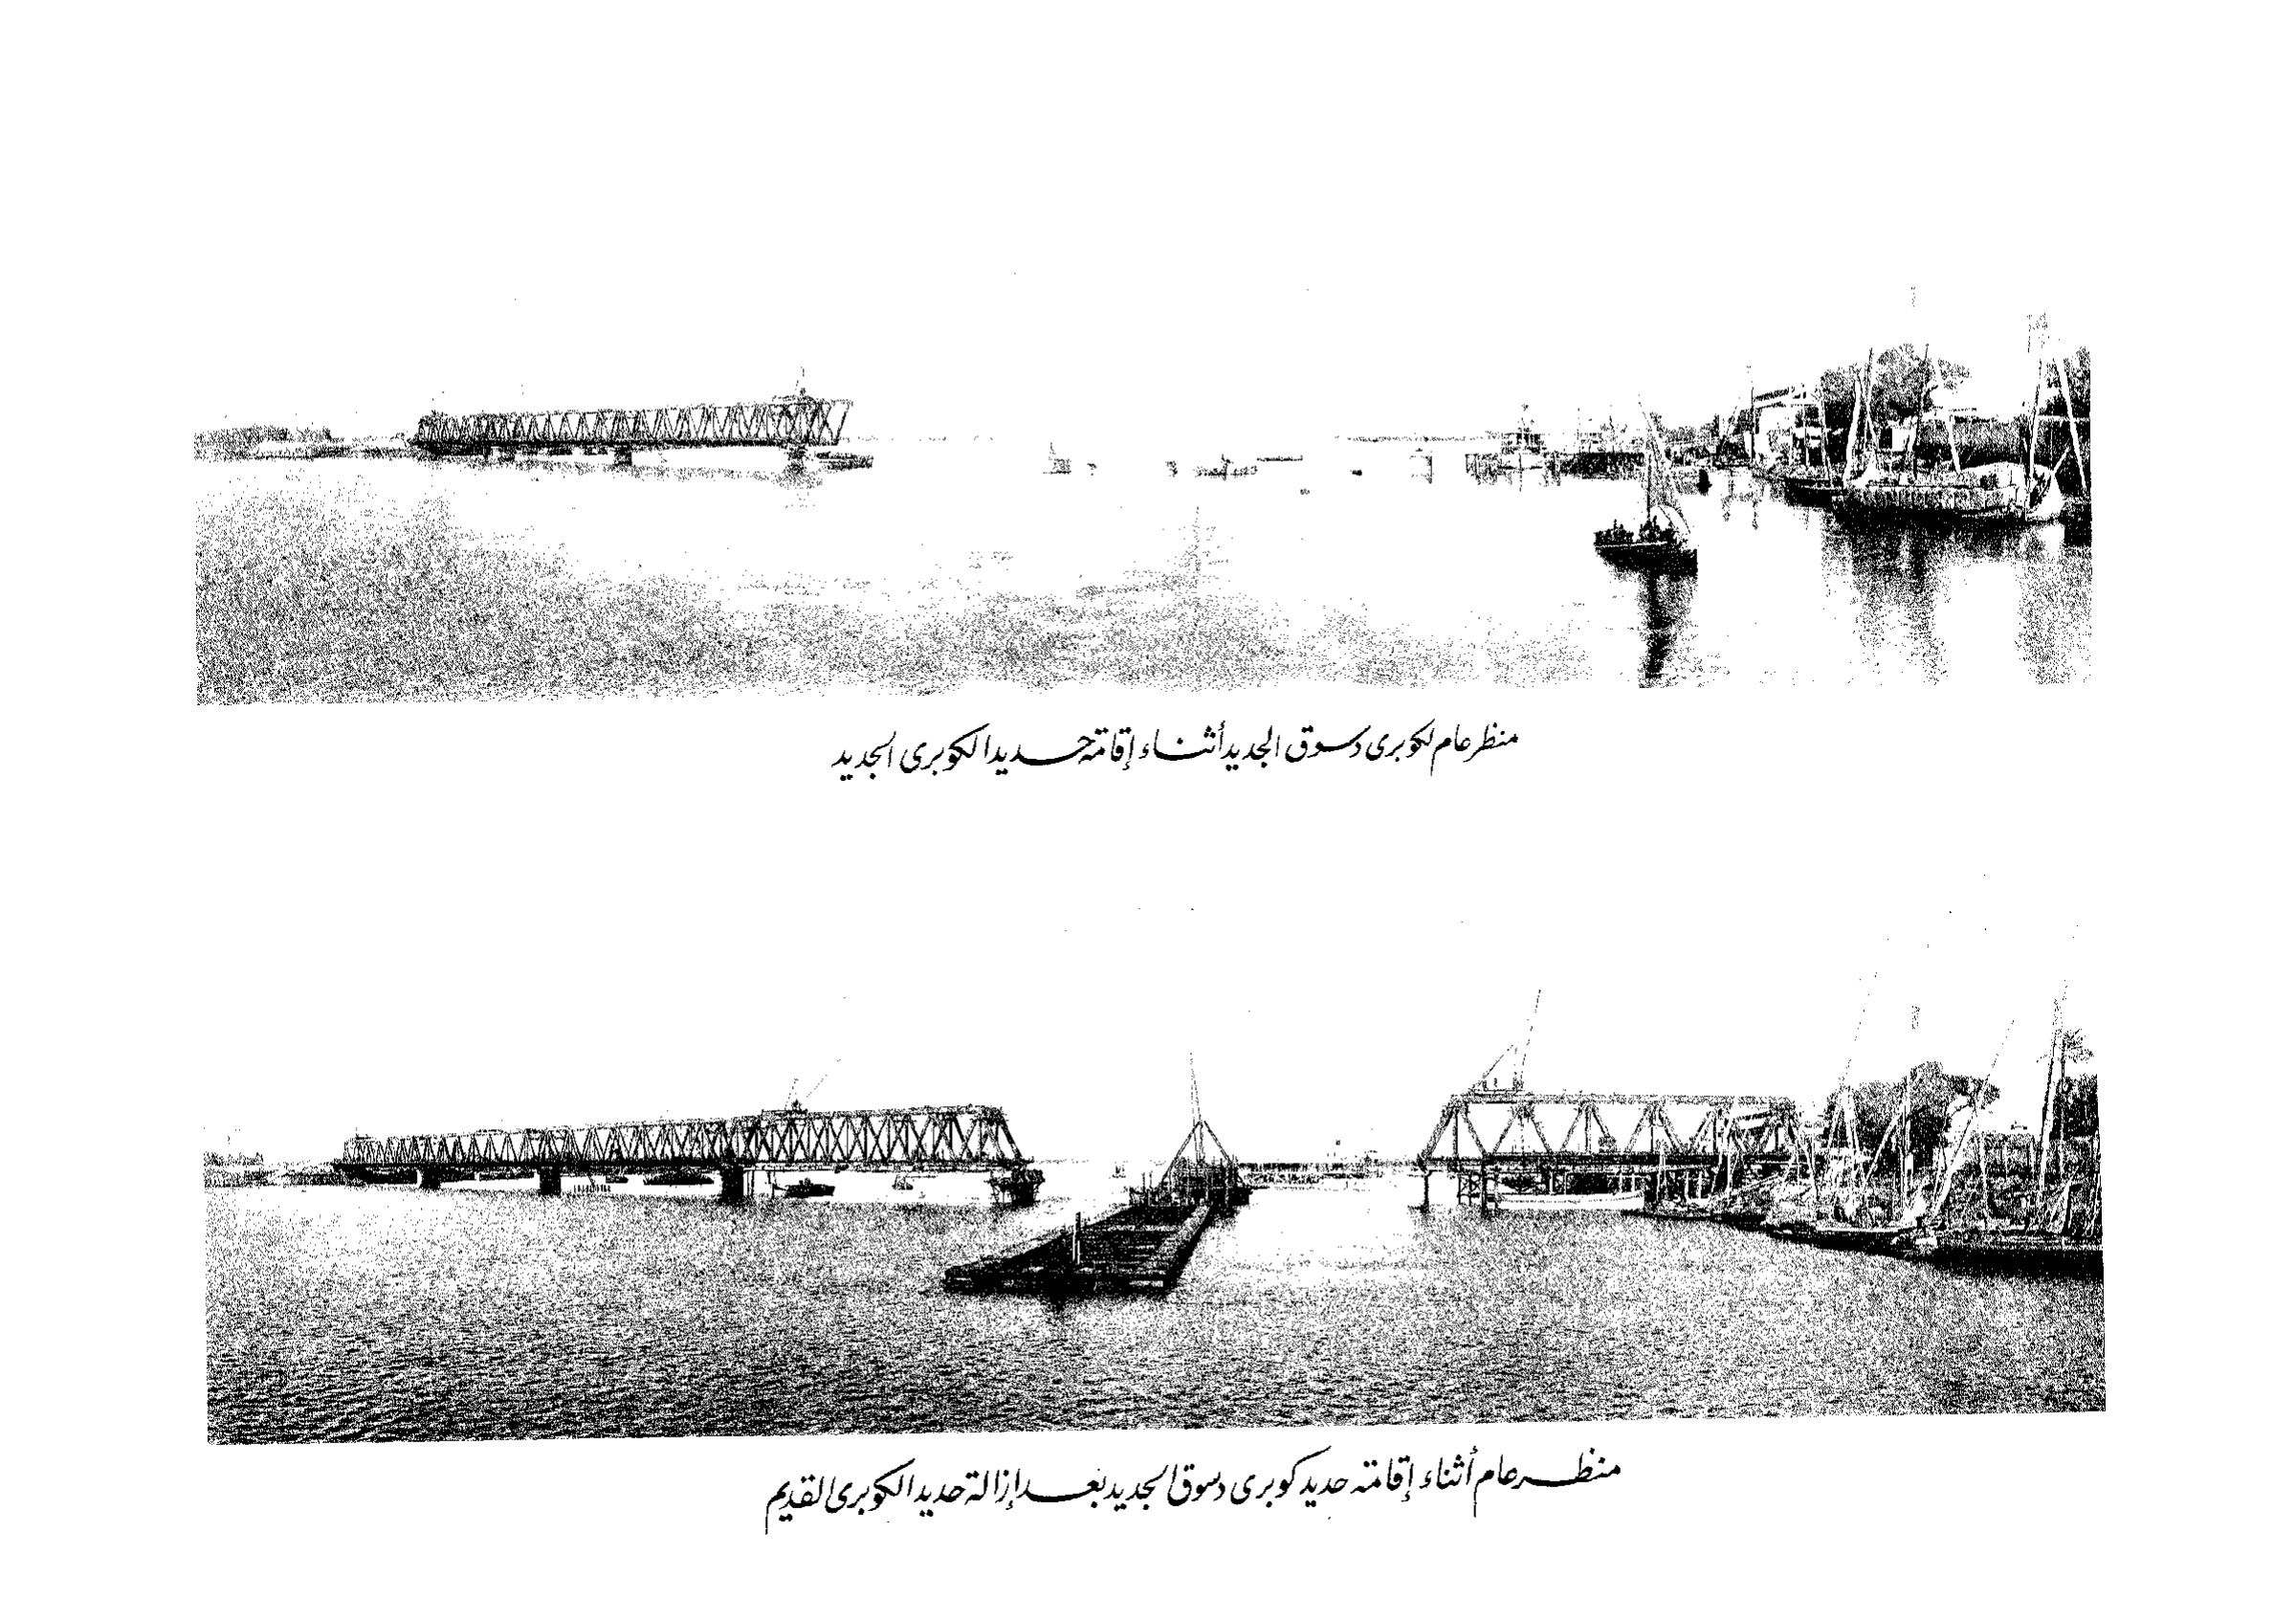 منظر عام لكوبرى دسوق الجديد أثناء إقامة حديد الكوبرى الجديد
منظر عام أثناء إقامة حديد كوبرى دسوق الجديد بعد إزالة حديد الكوبرى القديم